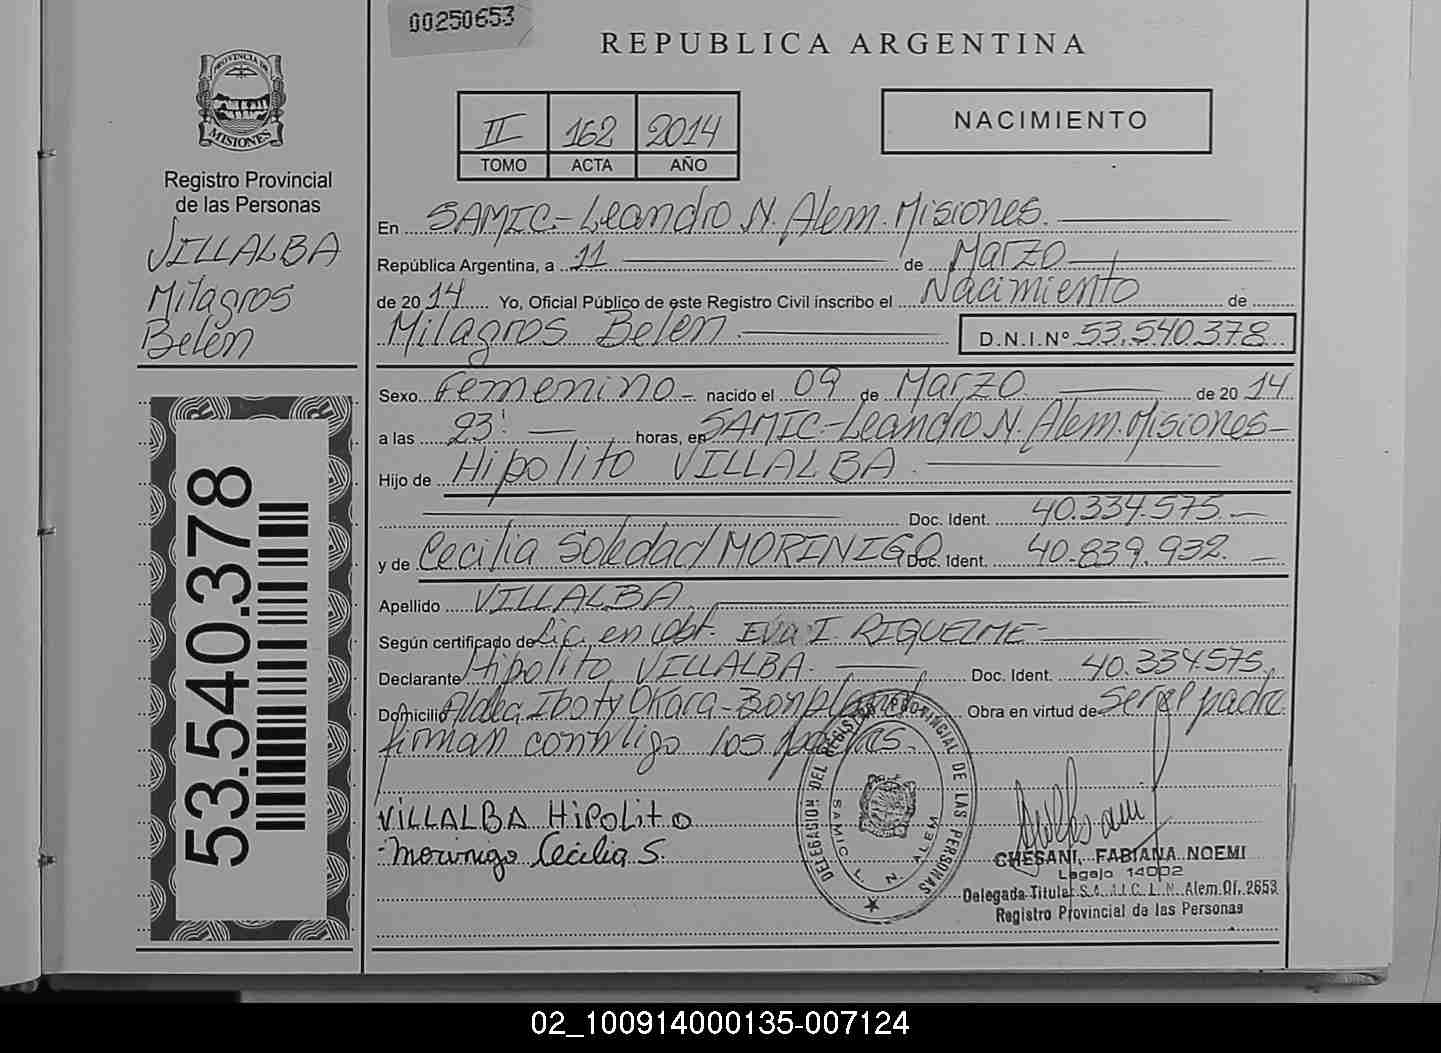 00250653
REPUBLICA ARGENTINA
PROVINCIA DE
MISIONES
II 162 2014
TOMO ACTA AÑO
NACIMIENTO
Registro Provincial
de las Personas
VILLALBA
Milagros
Belén
53.540.378
En SAMIC-Leandro N. Alem. Misiones.
República Argentina, a 11 de Marzo
de 2014 Yo, Oficial Público de este Registro Civil inscribo el Nacimiento de
Milagros Belén D.N.I.Nº 53.540.378
Sexo Femenino nacido el 09 de Marzo de 2014
a las 23' horas, en SAMIC-Leandro N. Alem. Misiones
Hijo de Hipolito VILLALBA
Doc. Ident. 40.334.575
y de Cecilia Soledad MORINIGO Doc. Ident. 40.839.932.
Apellido VILLALBA
Según certificado de Lic. en Obst. Eva I. RIQUELME
Declarante Hipolito VILLALBA Doc. Ident. 40.334.575
Domicilio Aldea Iboty Okara-Bonpland Obra en virtud de ser el padre
firman conmigo los padres.
VILLALBA HIPOLITO
Morinigo Cecilia S.
DELEGACION DEL REGISTRO PROVINCIAL DE LAS PERSONAS
SAMIC L. N. ALEM
CHESANI, FABIANA NOEMI
Legajo 14002
Delegada Titular S.A.M.I.C. L. N. Alem Of. 2653
Registro Provincial de las Personas
02_100914000135-007124